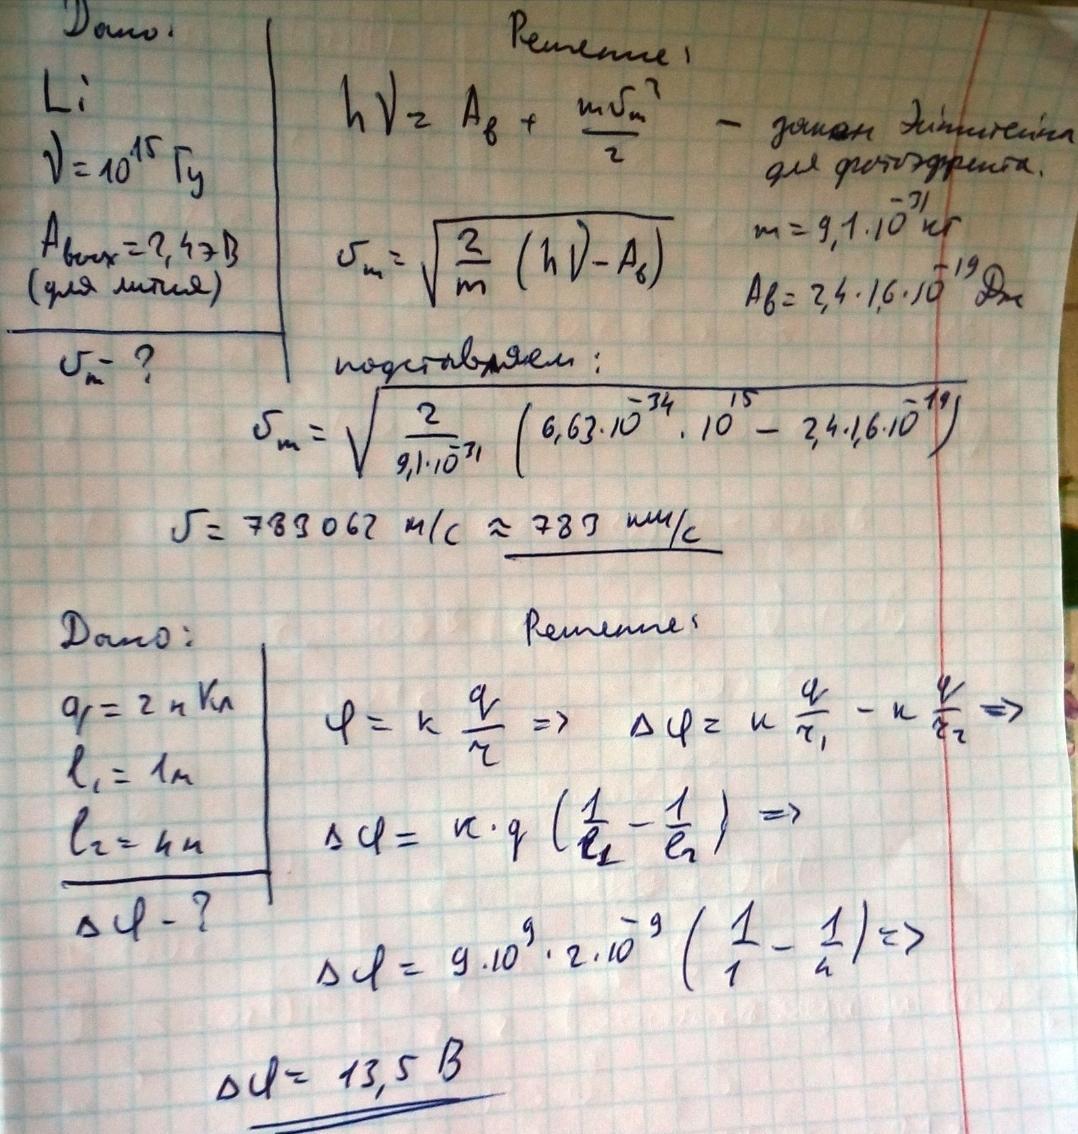 Дано:
Li
ν = 10^15 Гц
Aвых = 2,4 эВ
(для лития)
υm - ?
Решение:
hν = Aв + mυm²/2 – закон Эйнштейна
для фотоэффекта.
m = 9,1·10^-31 кг
υm = √(2/m (hν – Aв))
Aв = 2,4·1,6·10^-19 Дж
подставляем:
υm = √(2/9,1·10^-31 (6,63·10^-34 · 10^15 – 2,4·1,6·10^-19))
υ = 783062 м/с ≈ 783 км/с
Дано:
q = 2 нКл
l₁ = 1м
l₂ = 4м
Δφ - ?
Решение:
φ = к q/r => Δφ = к q/r₁ – к q/r₂ =>
Δφ = к·q (1/l₁ – 1/l₂) =>
Δφ = 9·10^9·2·10^-9 (1/1 – 1/4) =>
Δφ = 13,5 В